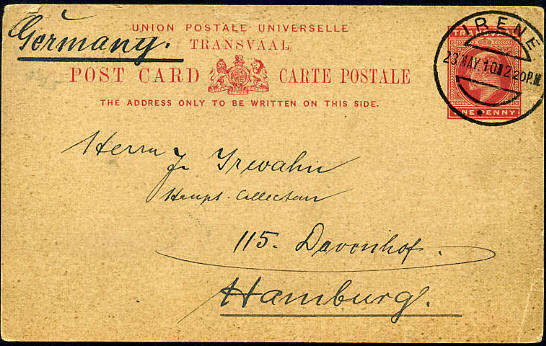 UNION POSTALE UNIVERSELLE
Germany. TRANSVAAL
POST CARD CARTE POSTALE
THE ADDRESS ONLY TO BE WRITTEN ON THIS SIDE.
IRENE
23 MAY 10 2 20 P.M.
ONE PENNY
Herrn J. Irwahn
Haupt-Collecteur
115. Dovenhof.
Hamburg.